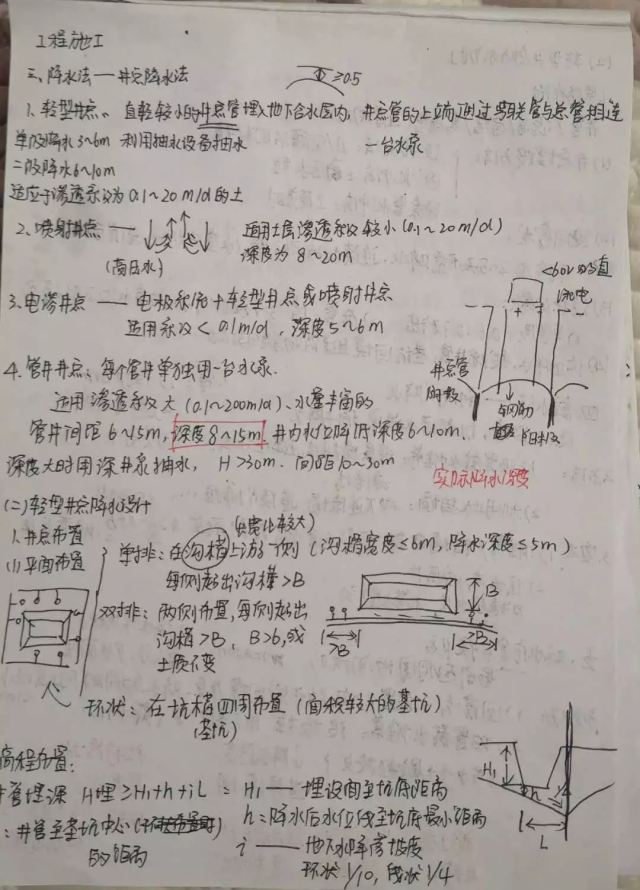 工程施工
三、降水法——井点降水法
≥0.5
1、轻型井点：直径较小的井点管埋入地下含水层内，井点管的上端通过弯联管与总管相连
单级降水3~6m 利用抽水设备抽水 一台水泵
二级降水6~10m
适应于渗透系数为0.1~20m/d的土
2、喷射井点——
适用土层渗透系数较小(0.1~20m/d)
(高压水)
深度为8~20m
<60V的直流电
3.电渗井点——电极系统+轻型井点或喷射井点
适用系数<0.1m/d，深度5~6m
井点管
阴极
钢筋
阳极
4.管井井点：每个管井单独用一台水泵.
适用渗透系数大(0.1~200m/d)、水量丰富的
管井间距6~15m,深度8~15m.井内水位降低深度6~10m.
深度大时用深井泵抽水，H>30m.间距10~30m
实际降水深度
(二)轻型井点降水设计
1.井点布置
(1)平面布置
(长宽比较大)
单排：在沟槽上游一侧(沟槽宽度≤6m,降水深度≤5m)
每侧超出沟槽>B
双排：两侧布置,每侧超出
沟槽>B，B>6,或
土质不变
B
>B
>B
环状：在坑槽四周布置(面积较大的基坑)
(基坑)
高程布置:
井管埋深 H埋≥H1+h+iL = H1——埋设面至坑底距离
h:降水后水位线至坑底最小距离
：井管至基坑中心
的距离
i——地下水降落坡度
环状1/10,线状1/4
H1
h
L